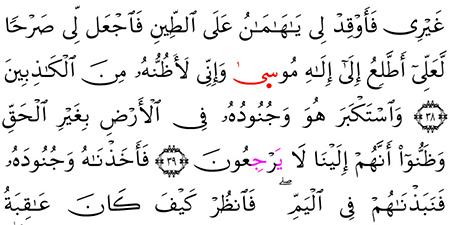 غَيْرِى فَأَوْقِدْ لِى يَٰهَٰمَٰنُ عَلَى ٱلطِّينِ فَٱجْعَل لِّى صَرْحًا
لَّعَلِّىٓ أَطَّلِعُ إِلَىٰٓ إِلَٰهِ مُوسِىٰ وَإِنِّى لَأَظُنُّهُۥ مِنَ ٱلْكَٰذِبِينَ
﴿٣٨﴾ وَٱسْتَكْبَرَ هُوَ وَجُنُودُهُۥ فِى ٱلْأَرْضِ بِغَيْرِ ٱلْحَقِّ
وَظَنُّوٓا۟ أَنَّهُمْ إِلَيْنَا لَا يَرْجِعُونَ ﴿٣٩﴾ فَأَخَذْنَٰهُ وَجُنُودَهُۥ
فَنَبَذْنَٰهُمْ فِى ٱلْيَمِّ ۖ فَٱنظُرْ كَيْفَ كَانَ عَٰقِبَةُ